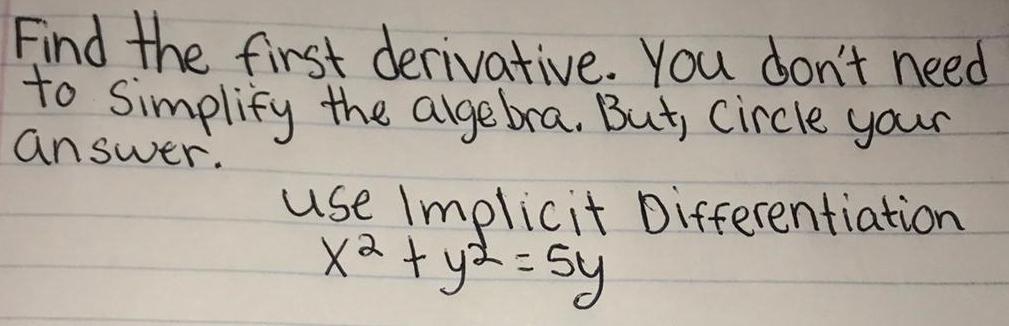 Find the first derivative. You don't need
to simplify the algebra. But, circle your
answer.
use Implicit Differentiation
x² + y² = 5y